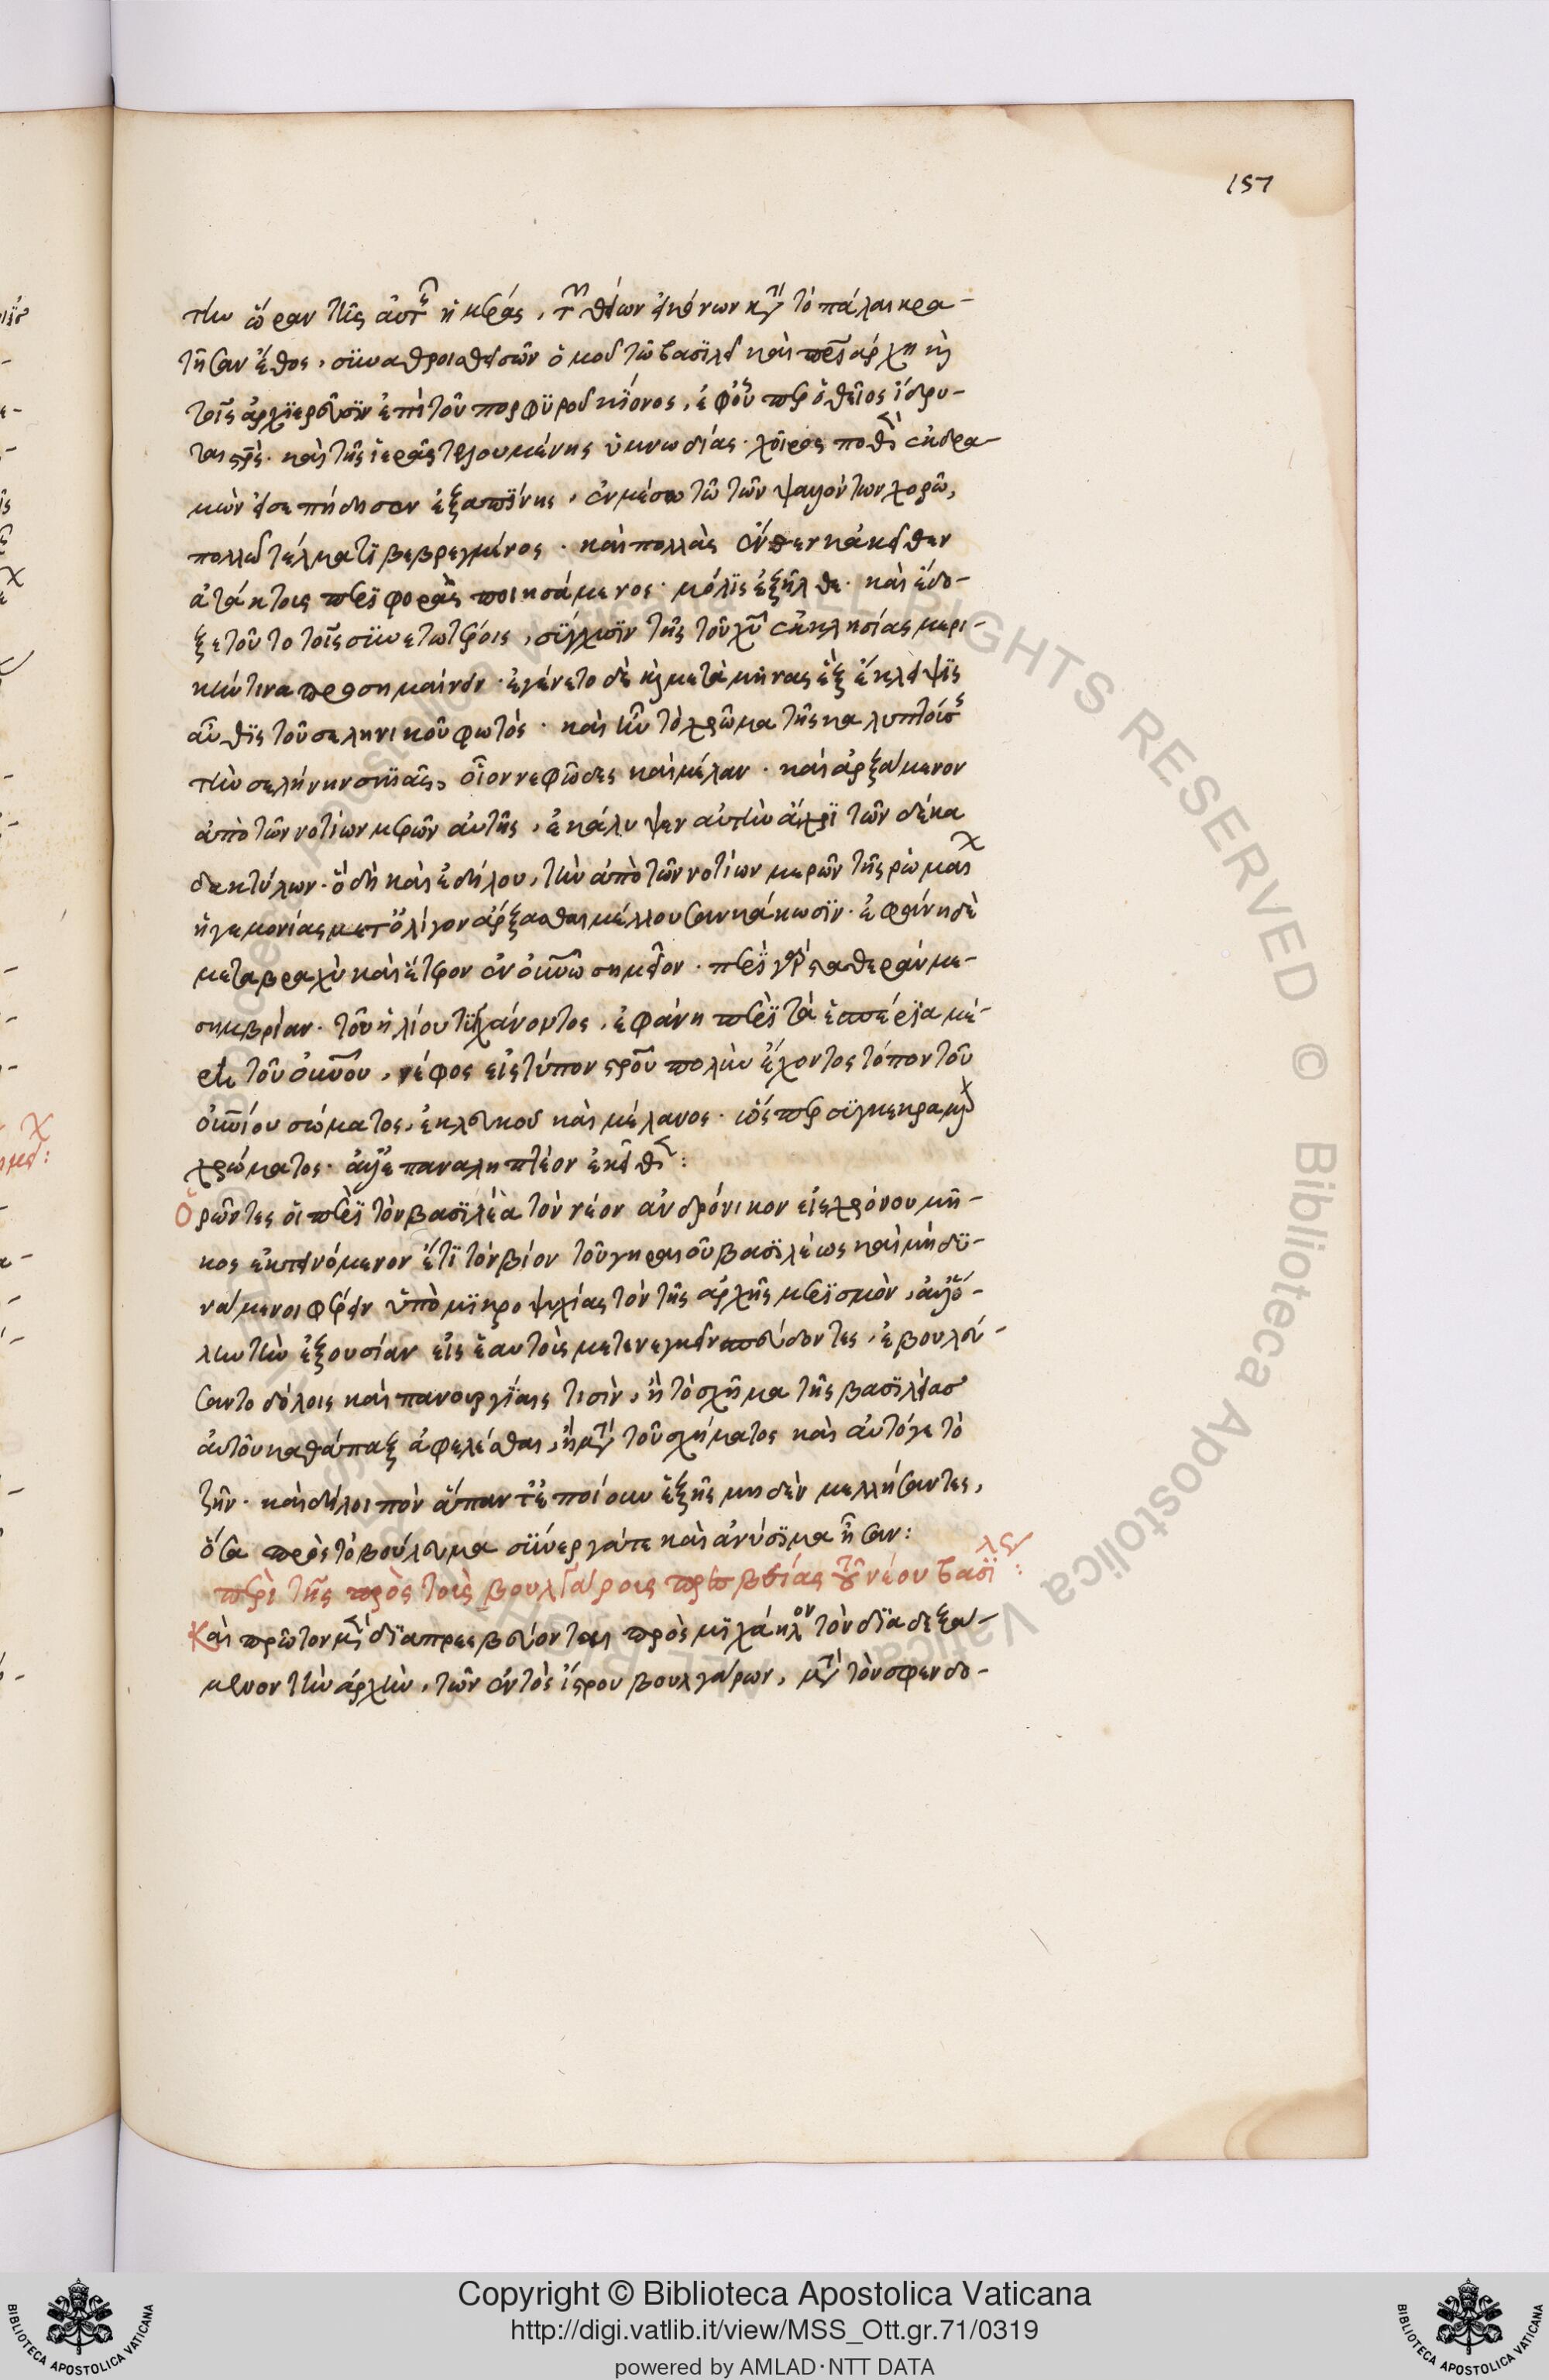 157
τὴν ὥραν τῆς αὐτῆς ἡμέρας, τῶν θείων εἰκόνων κατὰ τὸ πάλαι κρα-
τῆσαν ἔθος, συναθροισθεισῶν ὁμοῦ τῶ βασιλεῖ καὶ πατριάρχη καὶ
τοῖς ἀρχιερεῦσιν ἐπὶ τοῦ πορφυροῦ κίονος, ἐφ' οὗπερ ὁ θεῖος ἵδρυ-
ται σταυρός. καὶ τῆς ἱερᾶς τελουμένης ὑμνωδίας. χοῖρος ποθὲν ἐκδρα-
μὼν εἰσεπήδησεν ἐξαπίνης, ἐν μέσω τῶ τῶν ψαλλόντων χορῶ,
πολλῶ τέλματι βεβρεγμένος. καὶ πολλὰς ἔνθεν κἀκεῖθεν
ἀτάκτοις περιφορὰς ποιησάμενος. μόλις ἐξῆλθε. καὶ ἔδο-
ξε τοῦτο τοῖς συνετωτέροις, σύγχυσιν τῆς τοῦ χυ ἐκκλησίας μερι-
κήν τινα προσημαίνειν. ἐγένετο δὲ καὶ μετὰ μῆνας ἓξ ἔκλειψις
αὖθις τοῦ σεληνικοῦ φωτός. καὶ ἦν τὸ χρῶμα τῆς καλυπτούσης
τὴν σελήνην σκιᾶς, οἷον νεφῶδες καὶ μέλαν. καὶ ἀρξάμενον
ἀπὸ τῶν νοτίων μερῶν αὐτῆς, ἐκάλυψεν αὐτὴν ἄχρι τῶν δέκα
δακτύλων. ὃ δὴ καὶ ἐδήλου, τὴν ἀπὸ τῶν νοτίων μερῶν τῆς ρωμαϊκῆς
ἡγεμονίας μετ' ὀλίγον ἄρξασθαι μέλλουσαν κάκωσιν. ἐφάνη δὲ
μετὰ βραχὺ καὶ ἕτερον ἐν οὐνῶ σημεῖον. περὶ γὰρ σταθερὰν με-
σημβρίαν. τοῦ ἡλίου τυγχάνοντος, ἐφάνη περὶ τὰ ἑσπέρια μέ-
ρη τοῦ οὐνοῦ, νέφος εἰς τύπον σροῦ πολὺν ἔχοντος τόπον τοῦ
οὐνίου σώματος, ἐκ λευκοῦ καὶ μέλανος. ὥσπερ συγκεκραμένου
χρώματος. ἀλλ' ἐπαναληπτέον ἐκεῖθεν:
Ὁρῶντες οἱ περὶ τὸν βασιλέα τὸν νέον ἀνδρόνικον εἰς χρόνου μῆ-
κος ἐκτεινόμενον ἔτι τὸν βίον τοῦ γηραιοῦ βασιλέως καὶ μὴ δυ-
νάμενοι φέρειν ὑπὸ μικροψυχίας τὸν τῆς ἀρχῆς μερισμὸν, ἀλλ' ὅ-
λην τὴν ἐξουσίαν εἰς ἑαυτοὺς μετενεγκεῖν σπεύδοντες, ἐβουλεύ-
σαντο δόλοις καὶ πανουργίαις τισὶν, ἢ τὸ σχῆμα τῆς βασιλείας
αὐτοῦ καθάπαξ ἀφελέσθαι, ἢ μετὰ τοῦ σχήματος καὶ αὐτό γε τὸ
ζῆν. καὶ δῆλοι πὸν ἅπαντ' ἐποίουν ἑξῆς μηδὲν μελλήσαντες,
ὅσα πρὸς τὸ βούλευμα συνεργά τε καὶ ἀνύσιμα ἦσαν:
περὶ τῆς πρὸς τοὺς βουλγάροις πρεσβείας τοῦ νέου βασιλέως:
Καὶ πρῶτον μὲν διαπρεσβεύονται πρὸς μιχαὴλον τὸν διαδεξά-
μενον τὴν ἀρχὴν, τῶν ἐντὸς ἴστρου βουλγάρων, μετὰ τὸν σφενδο-
Copyright © Biblioteca Apostolica Vaticana
http://digi.vatlib.it/view/MSS_Ott.gr.71/0319
powered by AMLAD·NTT DATA